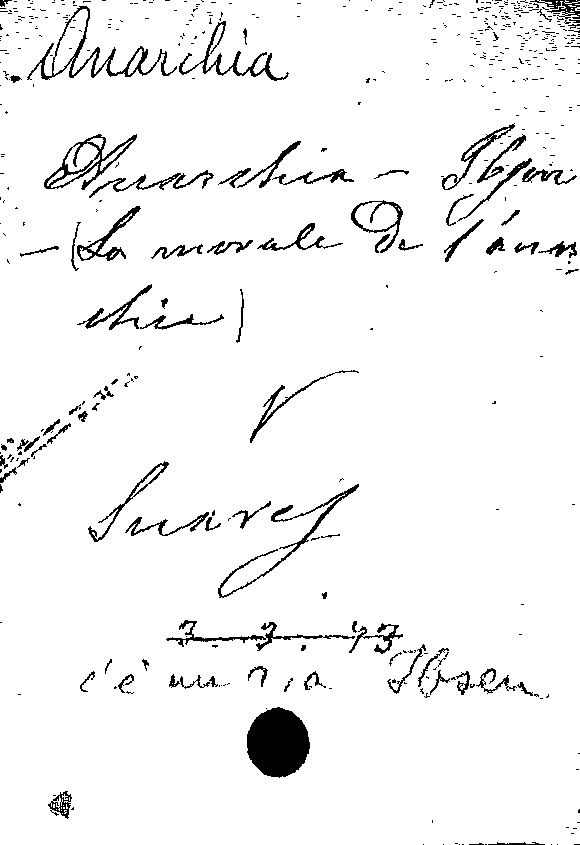 Anarchia
Anarchia - Ibsen
- (La morale de l'anar
chie)
V
Suarez
3. 3. 43
c'è un Ibsen